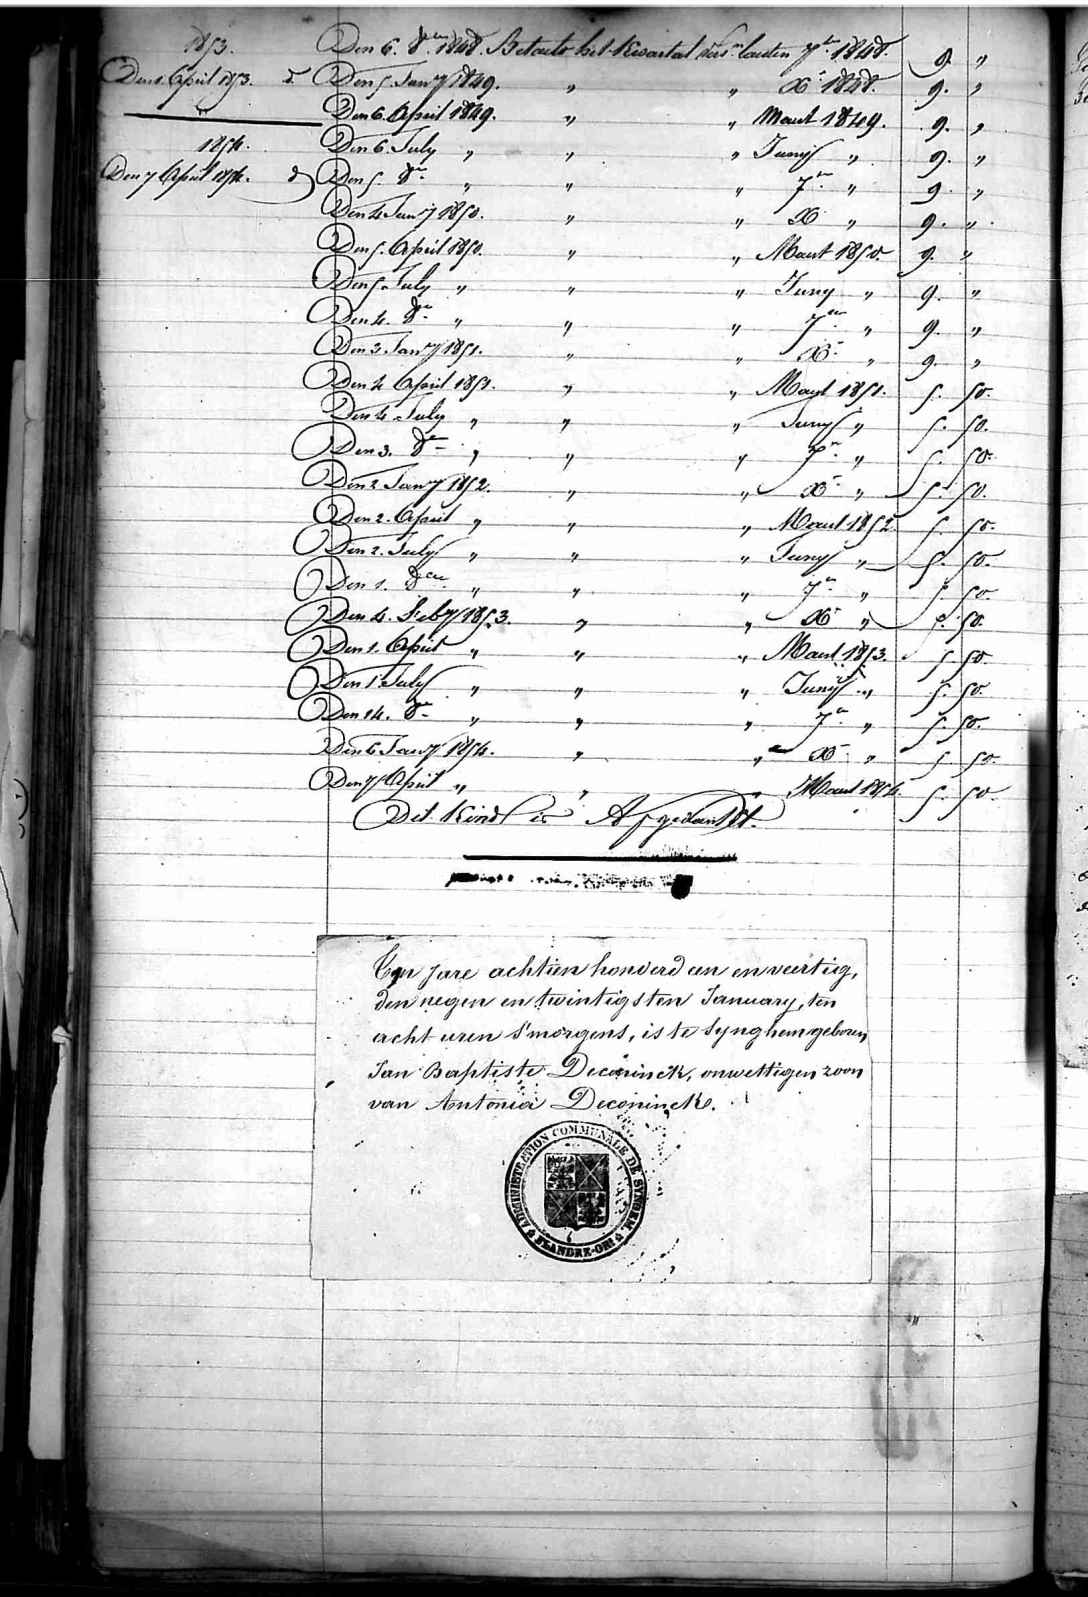 1853.
Den 1. April 1853. d°
1854.
Den 7 April 1854. d°
Den 6. 8ber 1848. Betaelt het Kwartal verschenen 7ber 1848. 9. "
Den 5 Jany 1849. " " Xbr 1848. 9. "
Den 6. April 1849. " " Maart 1849. 9. "
Den 6. July " " " Juny " 9. "
Den 5. 8er " " " 7er " 9. "
Den 4 Jany 1850. " " Xr " 9. "
Den 5. April 1850. " " Maart 1850. 9. "
Den 5. July " " " Juny " 9. "
Den 4. 8er " " " 7er " 9. "
Den 3 Jany 1851. " " Xr " 9. "
Den 4 April 1851. " " Maart 1851. 5. 50.
Den 4 July " " " Juny " 5. 50.
Den 3. 8er " " " 7er " 5. 50.
Den 2 Jany 1852. " " Xr " 5. 50.
Den 2. April " " " Maart 1852. 5. 50.
Den 2. July " " " Juny " 5. 50.
Den 1. 8er " " " 7er " 5. 50.
Den 4. Feby 1853. " " Xr " 5. 50.
Den 1. April " " " Maart 1853. 5. 50.
Den 1 July " " " Juny " 5. 50.
Den 14. 8er " " " 7er " 5. 50.
Den 6 Jany 1854. " " Xr " 5. 50.
Den 7 April " " " Maart 1854. 5. 50.
Dit Kind is Afgedankt.
Ten jare achtien honderd een en veertig,
den negen en twintigsten January, ten
acht uren s'morgens, is te Synghem geboren
Jan Baptiste Deconinck, onwettigen zoon
van Antonia Deconinck.
ADMINISTRATION COMMUNALE DE SYNGEM.
FLANDRE-ORle